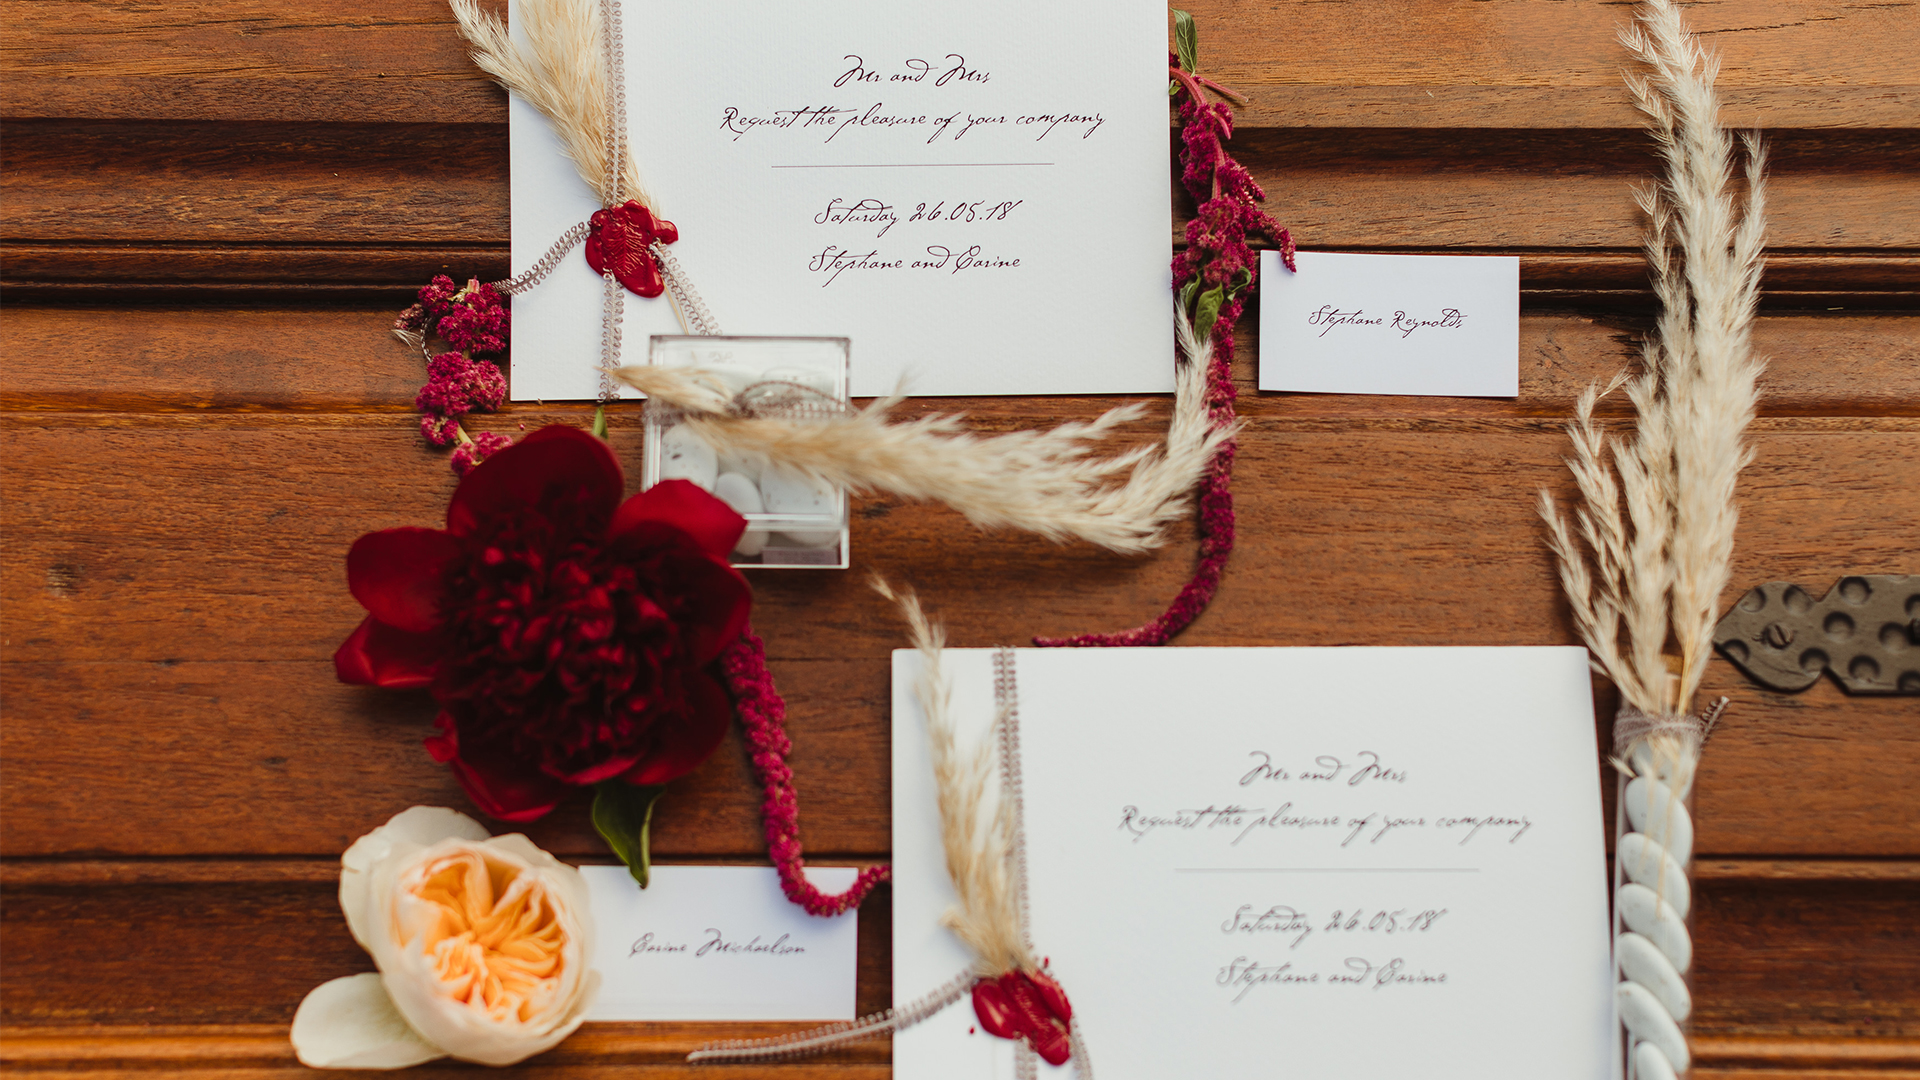 Mr and Mrs
Request the pleasure of your company
Saturday 26.05.18
Stephane and Carine
Stephane Reynolds
Mr and Mrs
Request the pleasure of your company
Saturday 26.05.18
Stephane and Carine
Carine Michaelson